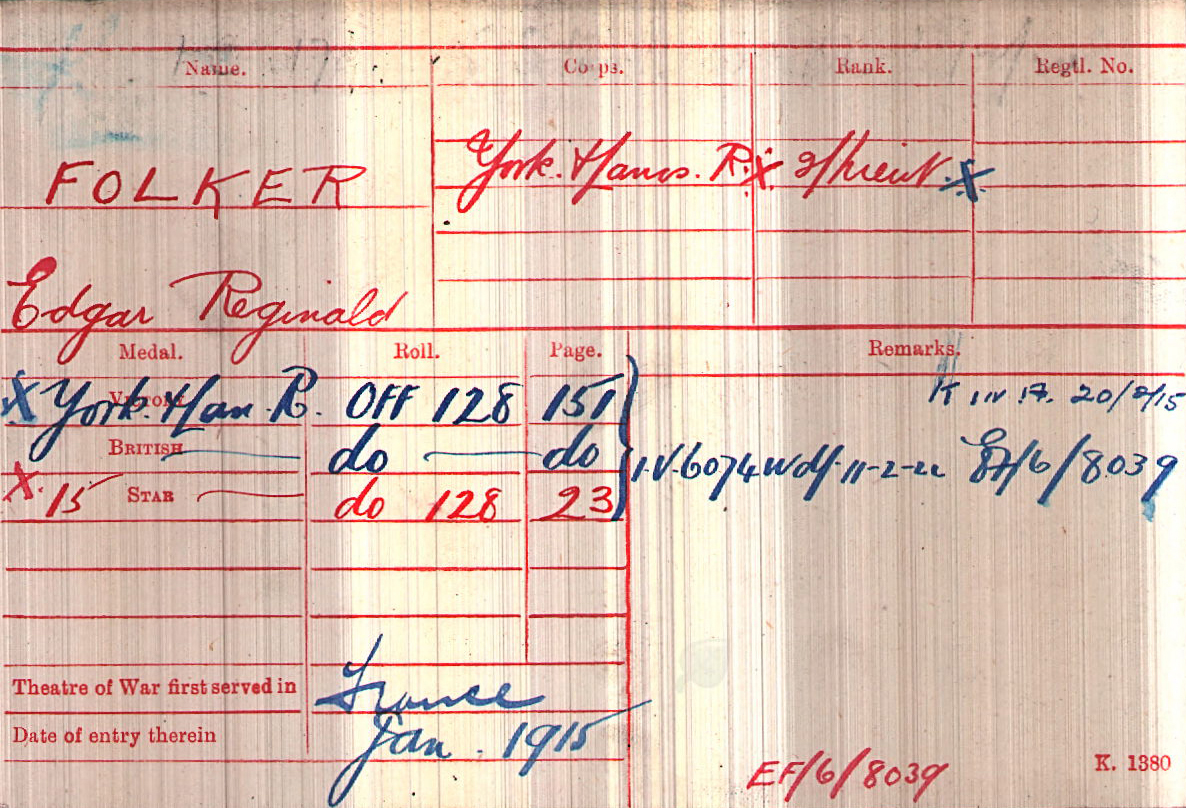 Name. Corps. Rank. Regtl. No.
FOLKER York. & Lancs. R. X 2/Lieut. X
Edgar Reginald
Medal. Roll. Page. Remarks.
X VICTORY York. & Lan. R. OFF 128 151 K in A. 20/2/15
BRITISH do do I.V. 6074 Wdf. 11-2-22 Ef/6/8039
X. 15 STAR do 128 23
Theatre of War first served in France
Date of entry therein Jan. 1915
EF/6/8039 K. 1380